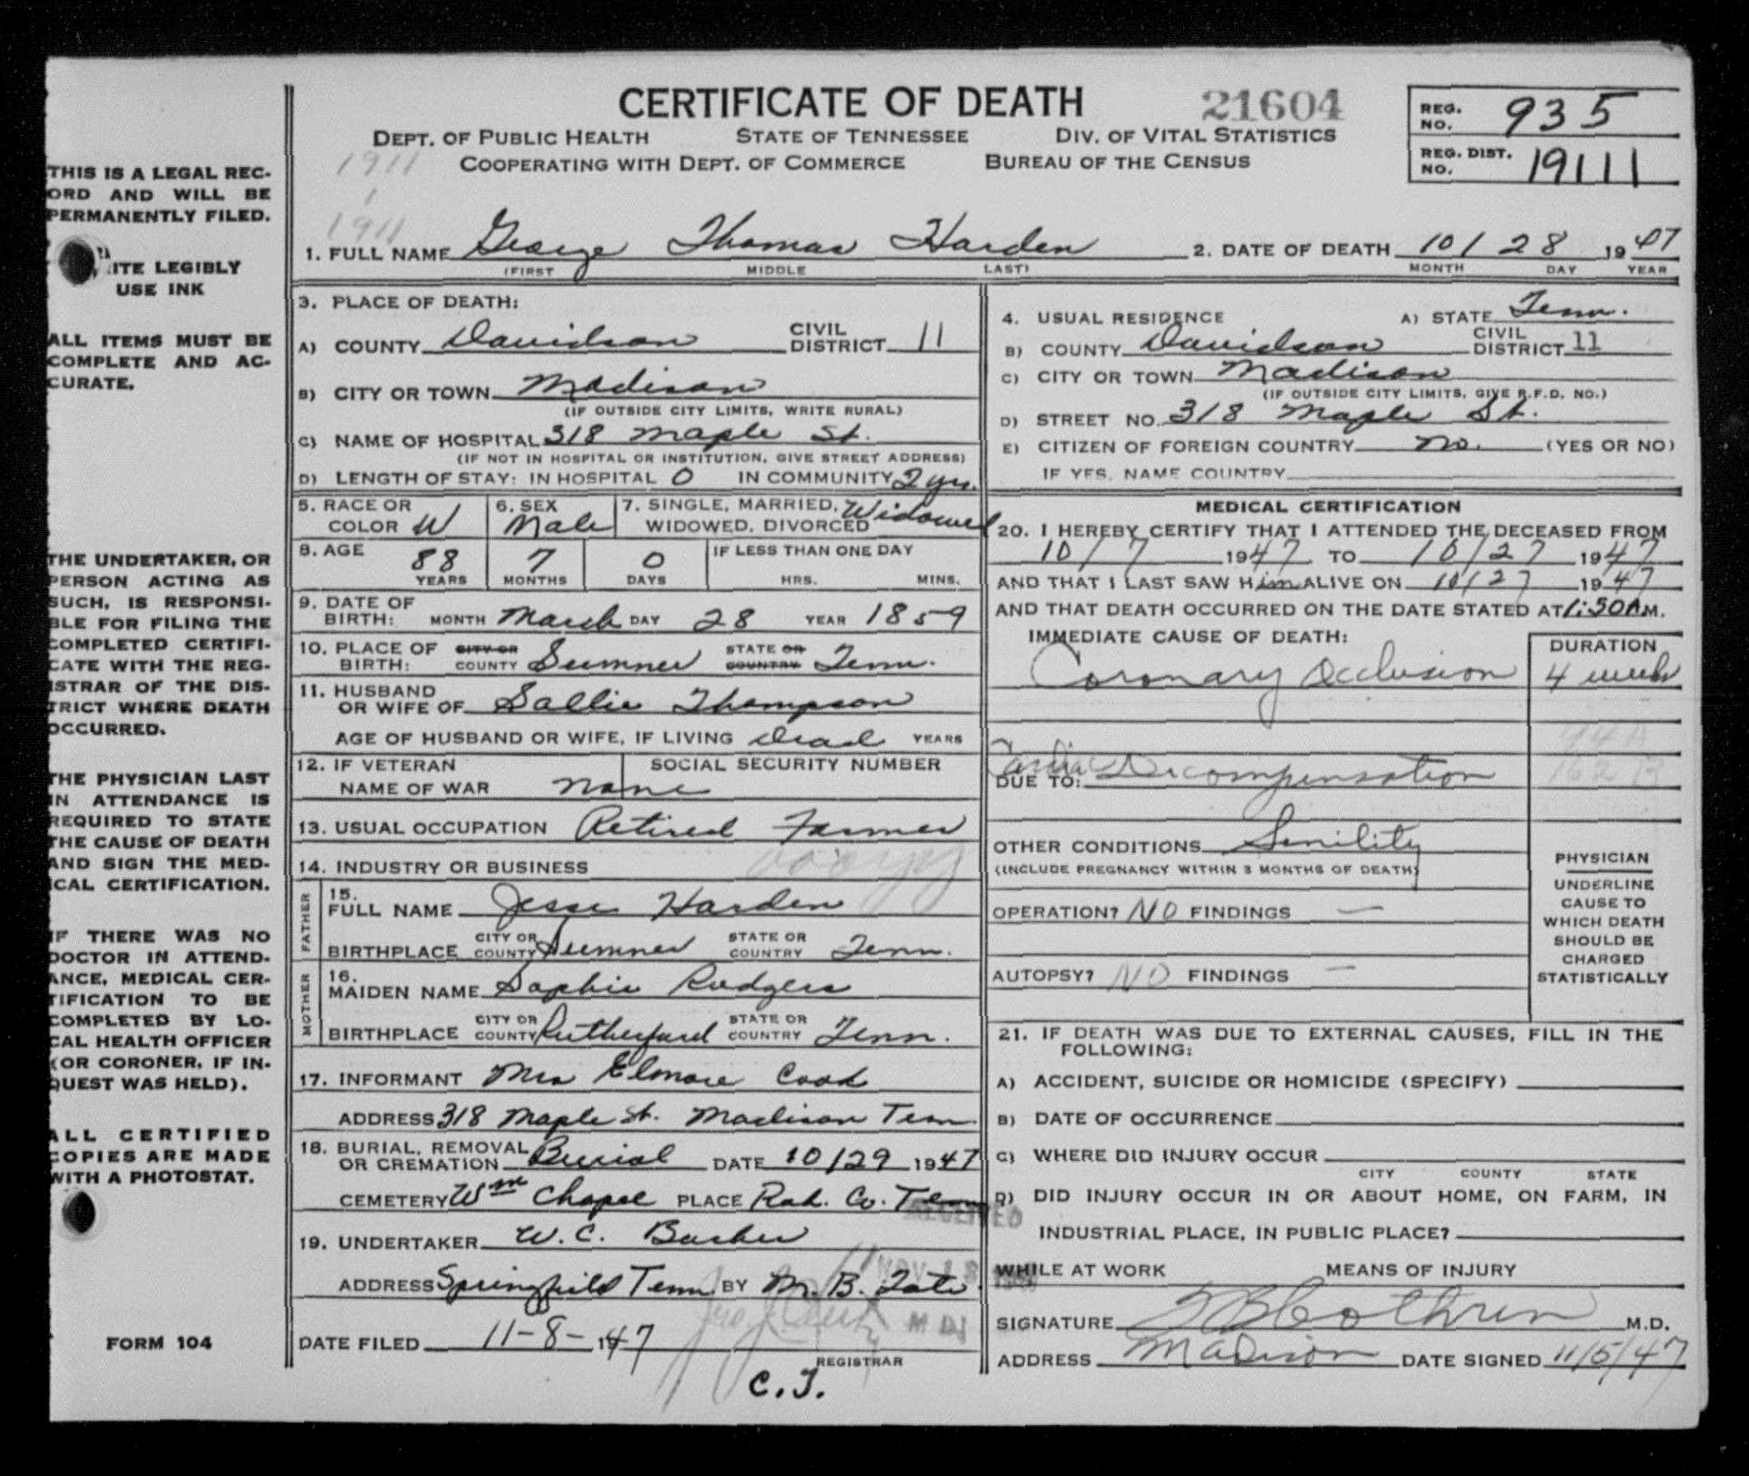 CERTIFICATE OF DEATH 21604
DEPT. OF PUBLIC HEALTH STATE OF TENNESSEE DIV. OF VITAL STATISTICS
COOPERATING WITH DEPT. OF COMMERCE BUREAU OF THE CENSUS
1911
1
1911
REG. NO. 935
REG. DIST. NO. 19111
THIS IS A LEGAL REC-
ORD AND WILL BE
PERMANENTLY FILED.
ITE LEGIBLY
USE INK
ALL ITEMS MUST BE
COMPLETE AND AC-
CURATE.
THE UNDERTAKER, OR
PERSON ACTING AS
SUCH, IS RESPONSI-
BLE FOR FILING THE
COMPLETED CERTIFI-
CATE WITH THE REG-
ISTRAR OF THE DIS-
TRICT WHERE DEATH
OCCURRED.
THE PHYSICIAN LAST
IN ATTENDANCE IS
REQUIRED TO STATE
THE CAUSE OF DEATH
AND SIGN THE MED-
ICAL CERTIFICATION.
IF THERE WAS NO
DOCTOR IN ATTEND-
ANCE, MEDICAL CER-
TIFICATION TO BE
COMPLETED BY LO-
CAL HEALTH OFFICER
(OR CORONER, IF IN-
QUEST WAS HELD).
ALL CERTIFIED
COPIES ARE MADE
WITH A PHOTOSTAT.
FORM 104
1. FULL NAME George Thomas Harden 2. DATE OF DEATH 10/ 28 1947
(FIRST MIDDLE LAST) MONTH DAY YEAR
3. PLACE OF DEATH:
A) COUNTY Davidson CIVIL DISTRICT 11
B) CITY OR TOWN Madison
(IF OUTSIDE CITY LIMITS, WRITE RURAL)
C) NAME OF HOSPITAL 318 Maple St.
(IF NOT IN HOSPITAL OR INSTITUTION, GIVE STREET ADDRESS)
D) LENGTH OF STAY: IN HOSPITAL 0 IN COMMUNITY 2 yrs.
5. RACE OR COLOR W 6. SEX Male 7. SINGLE, MARRIED, WIDOWED, DIVORCED Widowed
8. AGE 88 YEARS 7 MONTHS 0 DAYS IF LESS THAN ONE DAY HRS. MINS.
9. DATE OF BIRTH: MONTH March DAY 28 YEAR 1859
10. PLACE OF BIRTH: CITY OR COUNTY Sumner STATE OR COUNTRY Tenn.
11. HUSBAND OR WIFE OF Sallie Thompson
AGE OF HUSBAND OR WIFE, IF LIVING dead YEARS
12. IF VETERAN NAME OF WAR none SOCIAL SECURITY NUMBER
13. USUAL OCCUPATION Retired Farmer
14. INDUSTRY OR BUSINESS
FATHER
15. FULL NAME Jesse Harden
BIRTHPLACE CITY OR COUNTY Sumner STATE OR COUNTRY Tenn.
MOTHER
16. MAIDEN NAME Sophie Rodgers
BIRTHPLACE CITY OR COUNTY Rutherfurd STATE OR COUNTRY Tenn.
17. INFORMANT Mrs Elmore Cook
ADDRESS 318 Maple St. Madison Tenn.
18. BURIAL, REMOVAL OR CREMATION Burial DATE 10/29 1947
CEMETERY Wm Chapel PLACE Rob. Co. Tenn
RECEIVED
19. UNDERTAKER W. C. Barker
NOV 18
ADDRESS Springfield Tenn. BY M. B. Tate
DATE FILED 11-8-1947 M D
REGISTRAR
C.J.
4. USUAL RESIDENCE A) STATE Tenn.
B) COUNTY Davidson CIVIL DISTRICT 11
C) CITY OR TOWN Madison
(IF OUTSIDE CITY LIMITS, GIVE R.F.D. NO.)
D) STREET NO. 318 Maple St.
E) CITIZEN OF FOREIGN COUNTRY no. (YES OR NO)
IF YES, NAME COUNTRY
MEDICAL CERTIFICATION
20. I HEREBY CERTIFY THAT I ATTENDED THE DECEASED FROM
10/7 1947 TO 10/27 1947
AND THAT I LAST SAW Him ALIVE ON 10/27 1947
AND THAT DEATH OCCURRED ON THE DATE STATED AT 1:50 A M.
IMMEDIATE CAUSE OF DEATH: DURATION
Coronary Occlusion 4 weeks
94A
DUE TO: Cardiac Decompensation 162 B
OTHER CONDITIONS Senility
(INCLUDE PREGNANCY WITHIN 3 MONTHS OF DEATH)
OPERATION? NO FINDINGS —
AUTOPSY? NO FINDINGS —
PHYSICIAN
UNDERLINE
CAUSE TO
WHICH DEATH
SHOULD BE
CHARGED
STATISTICALLY
21. IF DEATH WAS DUE TO EXTERNAL CAUSES, FILL IN THE
FOLLOWING:
A) ACCIDENT, SUICIDE OR HOMICIDE (SPECIFY)
B) DATE OF OCCURRENCE
C) WHERE DID INJURY OCCUR
CITY COUNTY STATE
D) DID INJURY OCCUR IN OR ABOUT HOME, ON FARM, IN
INDUSTRIAL PLACE, IN PUBLIC PLACE?
WHILE AT WORK MEANS OF INJURY
SIGNATURE Cothren M.D.
ADDRESS Madison DATE SIGNED 11/5/47